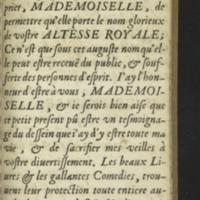 prier, MADEMOISELLE, de
permettre qu'elle porte le nom glorieux
de vostre ALTESSE ROYALE;
Ce n'est que sous cet auguste nom qu'el-
le peut estre receuë du public, & souf-
ferte des personnes d'esprit. I'ay l'hon-
neur d'estre à vous, MADEMOI-
SELLE, & ie serois bien aise que
ce petit present pû estre vn tesmoigna-
ge du dessein que i'ay d'y estre toute ma
vie, & de sacrifier mes veilles à
vostre diuertissement. Les beaux Li-
ures & les gallantes Comedies, trou-
uent leur protection toute entiere au-